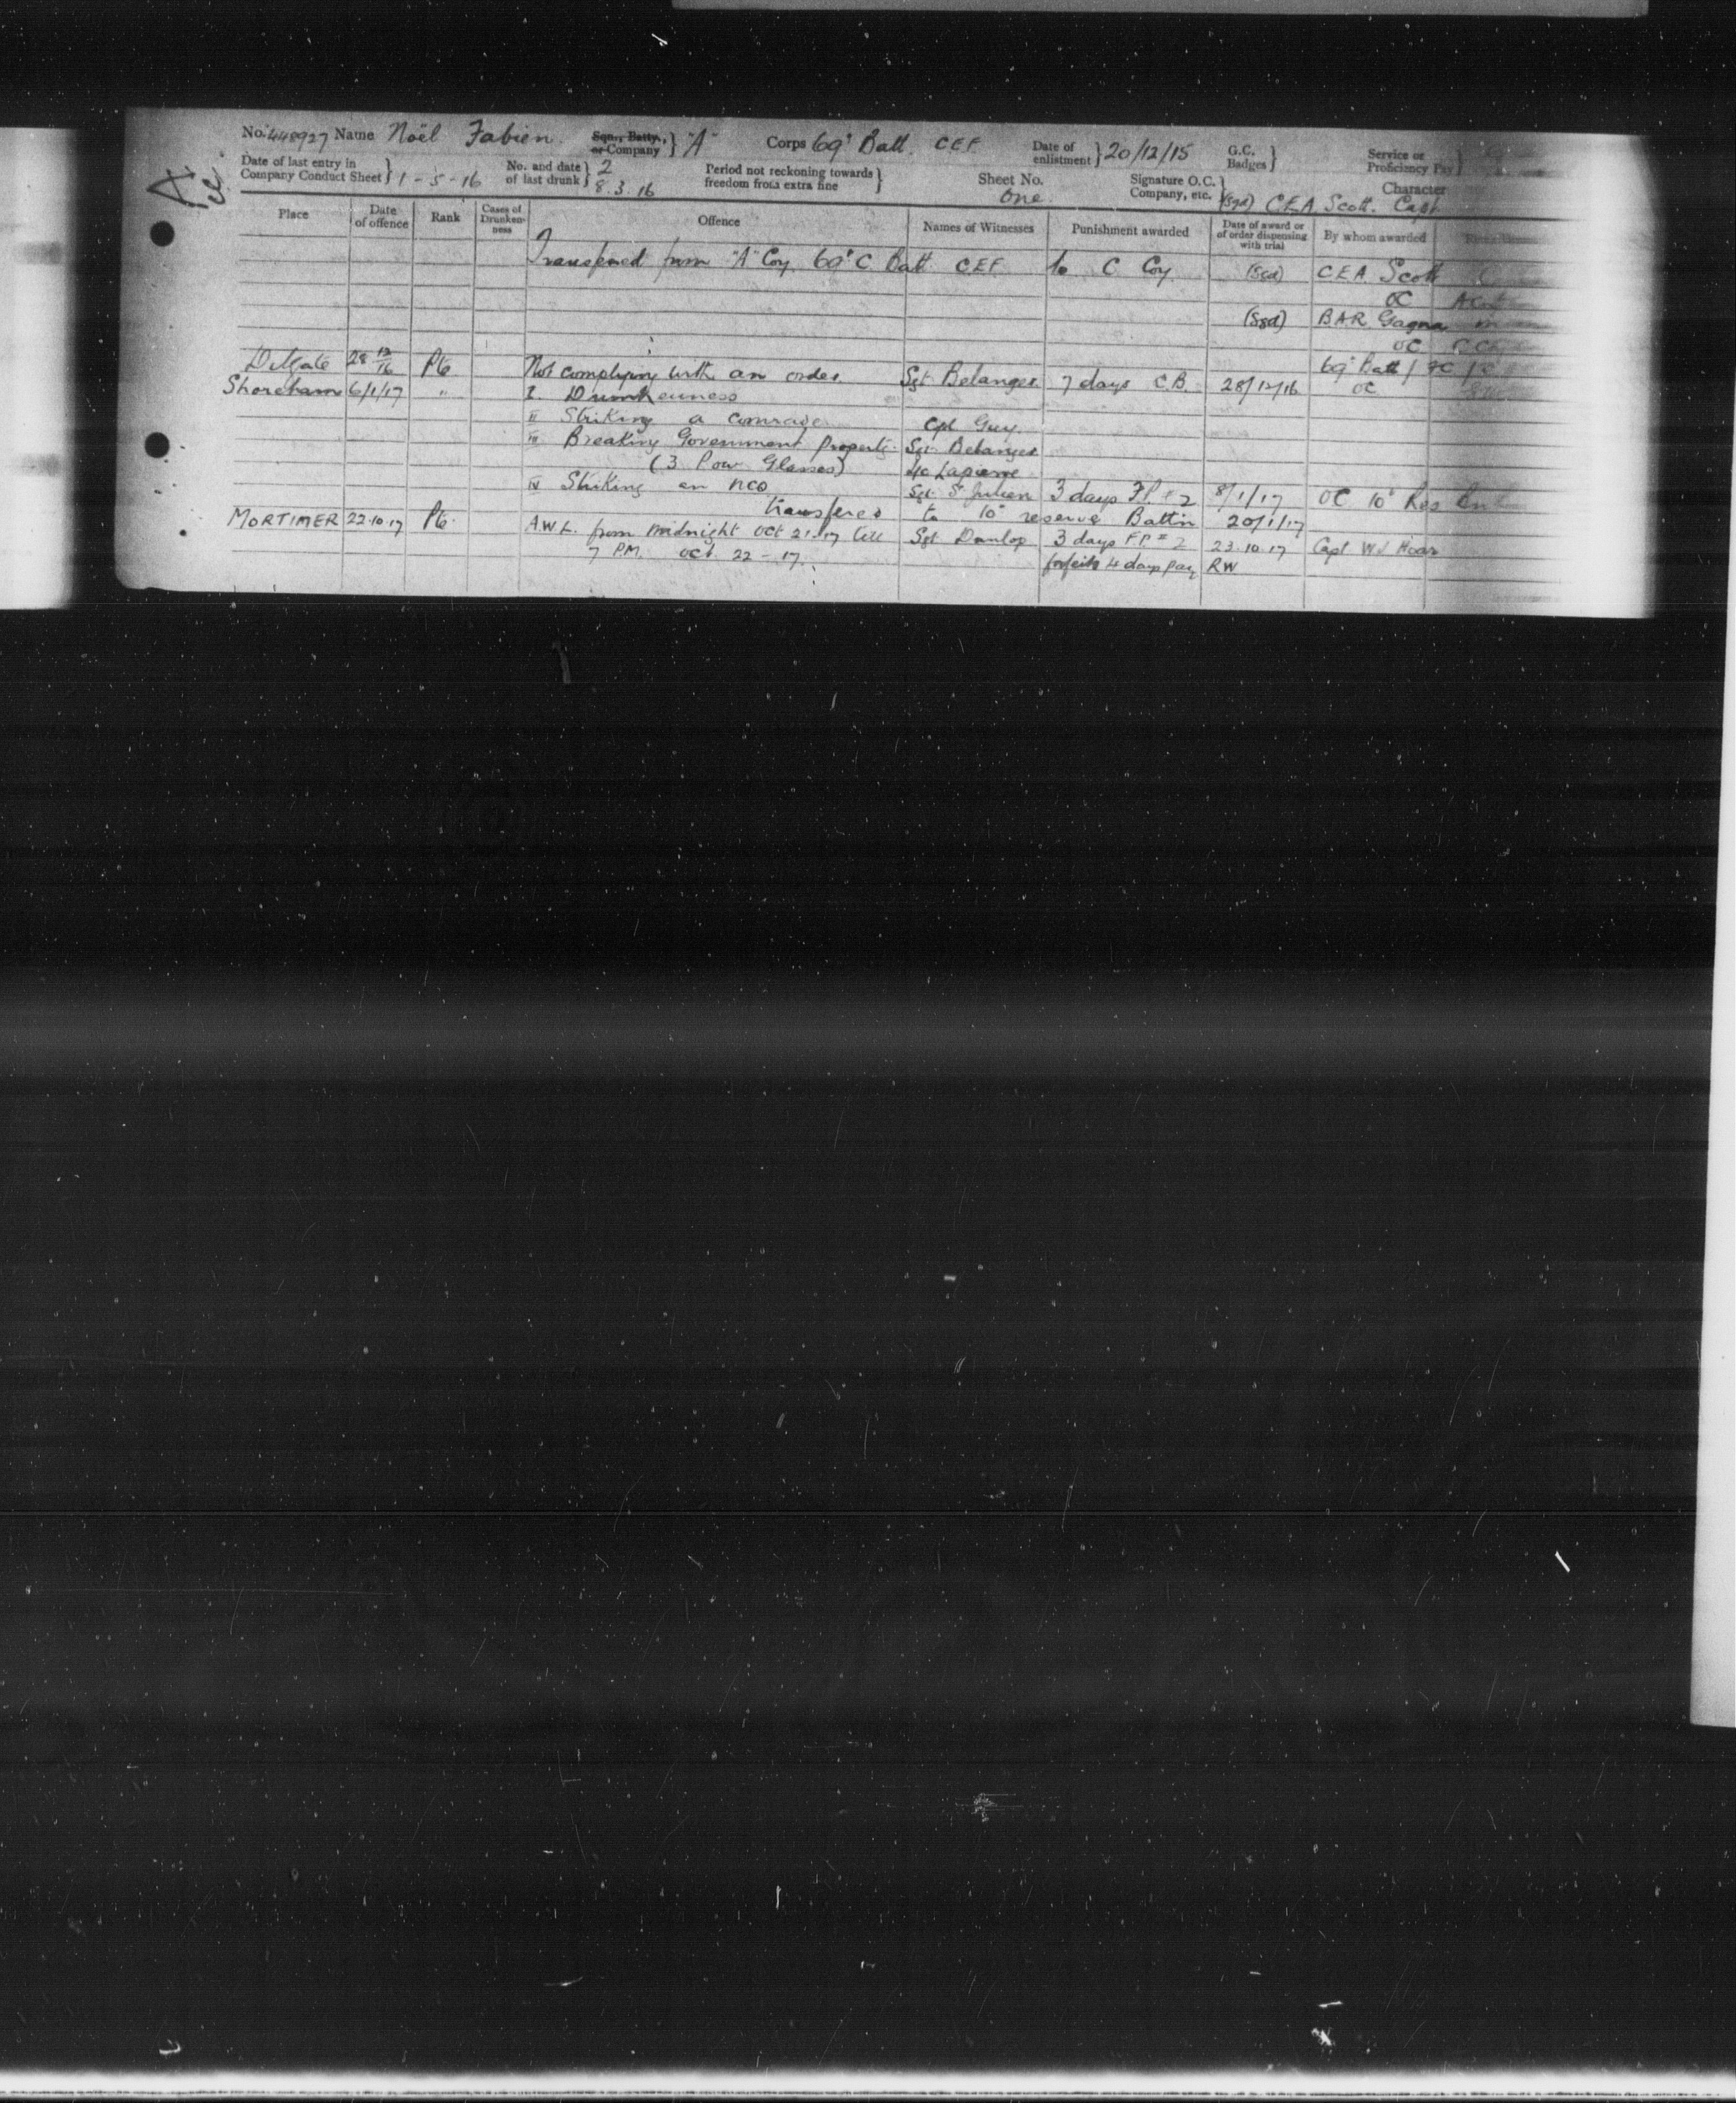 No. 448927 Name Noël Fabien Sqn., Batty., or Company } "A" Corps 69° Batt. CEF Date of enlistment } 20/12/15 G.C. Badges } Service or Proficiency Pay }
Date of last entry in Company Conduct Sheet } 1-5-16 No. and date of last drunk } 2 8.3.16 Period not reckoning towards freedom from extra fine } Sheet No. One Signature O.C. Company, etc. } (Sgd) C.E.A. Scott. Capt. Character
Place Date of offence Rank Cases of Drunkenness Offence Names of Witnesses Punishment awarded Date of award or of order dispensing with trial By whom awarded
Transfered from "A" Coy. 69° C. Batt. C.E.F. to C Coy (Sgd) C.E.A. Scott
OC
(Sgd) B.A.R. Gagnon
OC
69° Batt
Delgate 28 12/16 Pte Not complying with an order Sgt Belanger 7 days C.B. 28/12/16 OC
Shoreham 6/1/17 " I. Drunkenness
II Striking a comrade Cpl Guy
III Breaking Government property. Sgt. Belanger
(3 Glasses) Lapierre
IV Striking an NCO Sgt. St Julien 3 days F.P. # 2 8/1/17 OC 10° Res Bn
transfered to 10° reserve Battln 20/1/17
MORTIMER 22.10.17 Pte. A.W.L. from midnight Oct 21.17 till Sgt Dunlop 3 days F.P. # 2 23.10.17 Capt W.J. Hoar
7 P.M. Oct. 22-17. forfeits 4 days pay RW